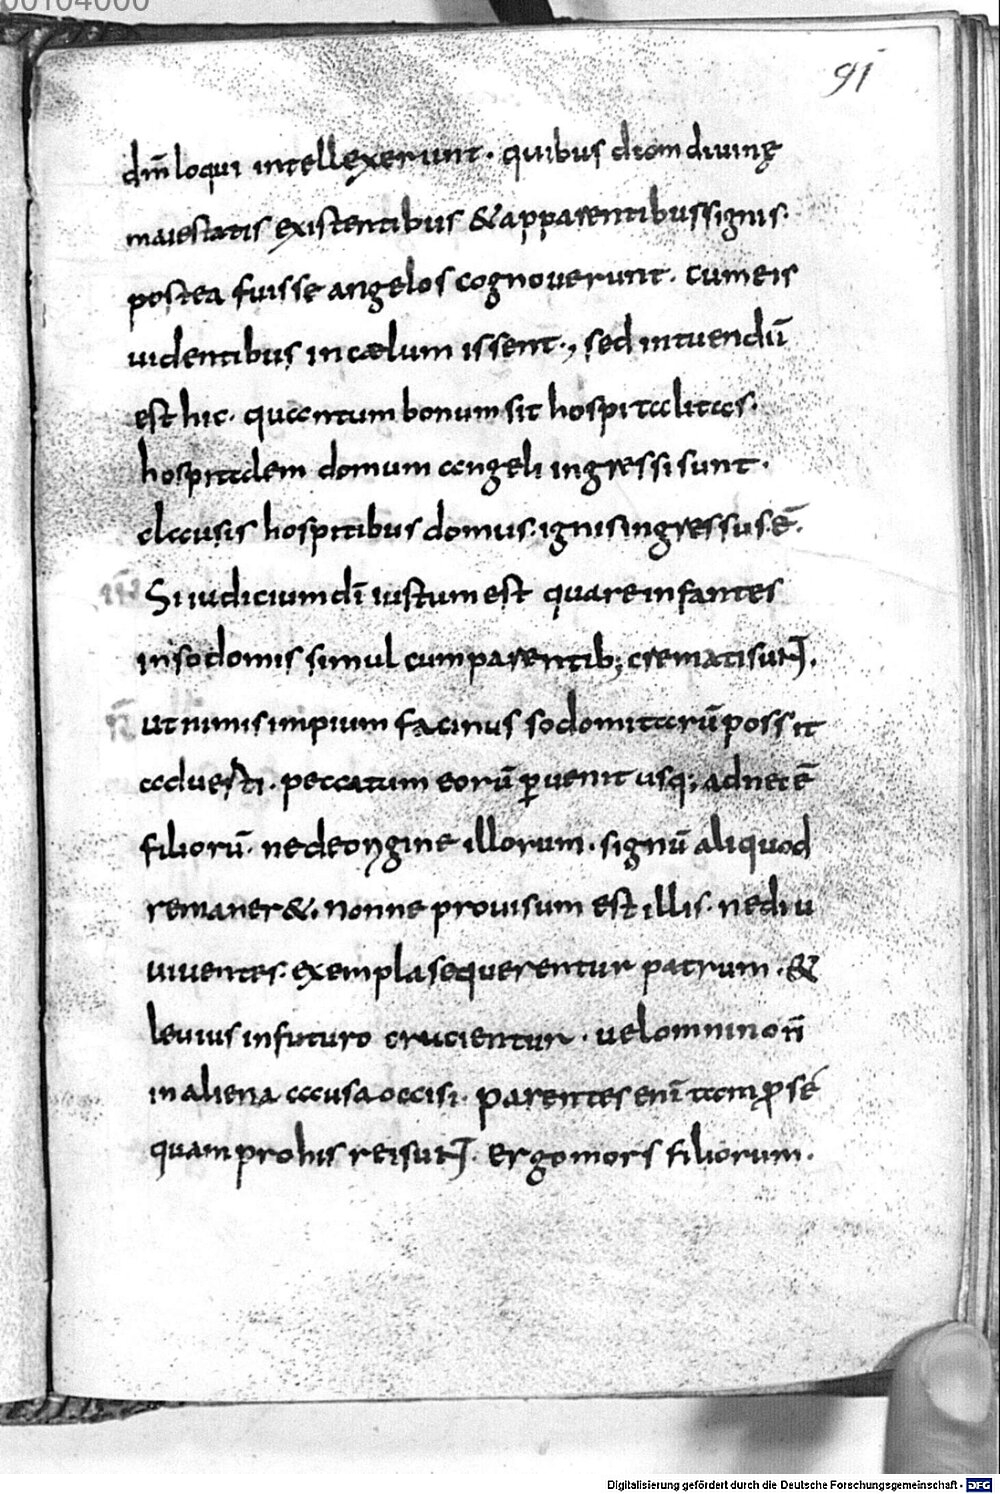 00104000
91
dm̄ loqui intellexerunt· quibus etiam diuinę
maiestatis existentibus & apparentibus signis·
postea fuisse angelos cognouerunt· cum eis
uidentibus in cælum issent·, sed intuendū
est hic· quantum bonum sit hospitalitas·
hospitalem domum angeli ingressi sunt·
clausis hospitibus domus· ignis ingressus· ē·
Si iudicium dī iustum est quare infantes
in sodomis simul cum parentib; cremati sunt·
ut nimis impium facinus sodomitarū possit
aduerti· peccatum eorū ꝑuenit usq; ad necē
filiorū· ne de origine illorum· signū aliquod
remaner&· nonne prouisum est illis· ne diu
uiuentes· exempla sequerentur patrum· &
leuius in futuro crucientur· uel omnino n̄
in aliena causa occisi· parentes enī tam ꝓ sé
quam pro his rei sunt· ergo mors filiorum·
Digitalisierung gefördert durch die Deutsche Forschungsgemeinschaft - DFG